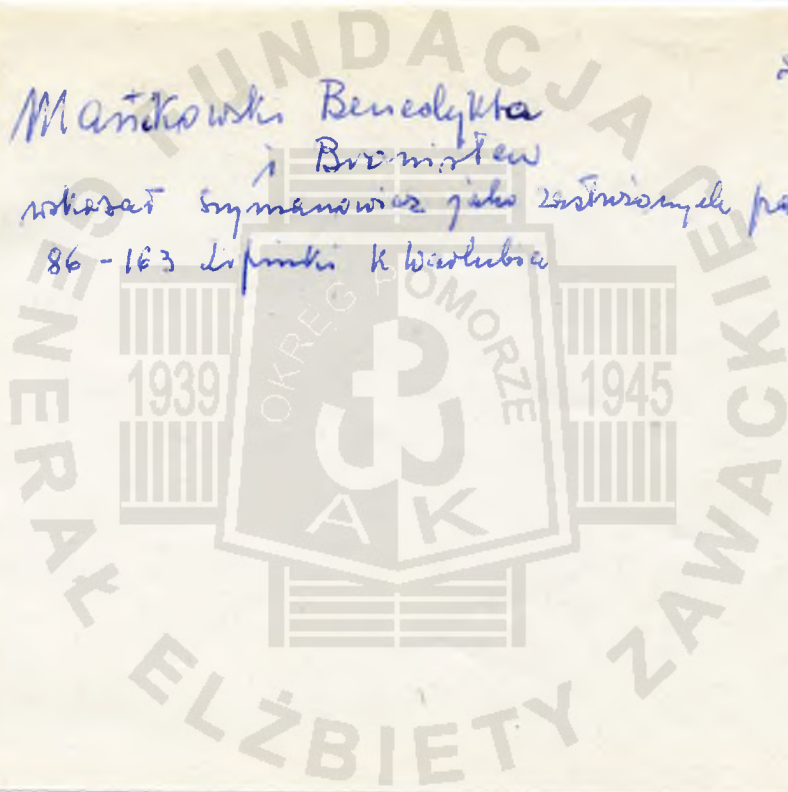 Mańkowski Benedykta
i Bronisław
wskazał Szymanowicz jako zasłużonych
86-163 Lipinki k Warlubia
FUNDACJA GENERAŁ ELŻBIETY ZAWACKIEJ
OKRĘG POMORZE
1939 1945
AK